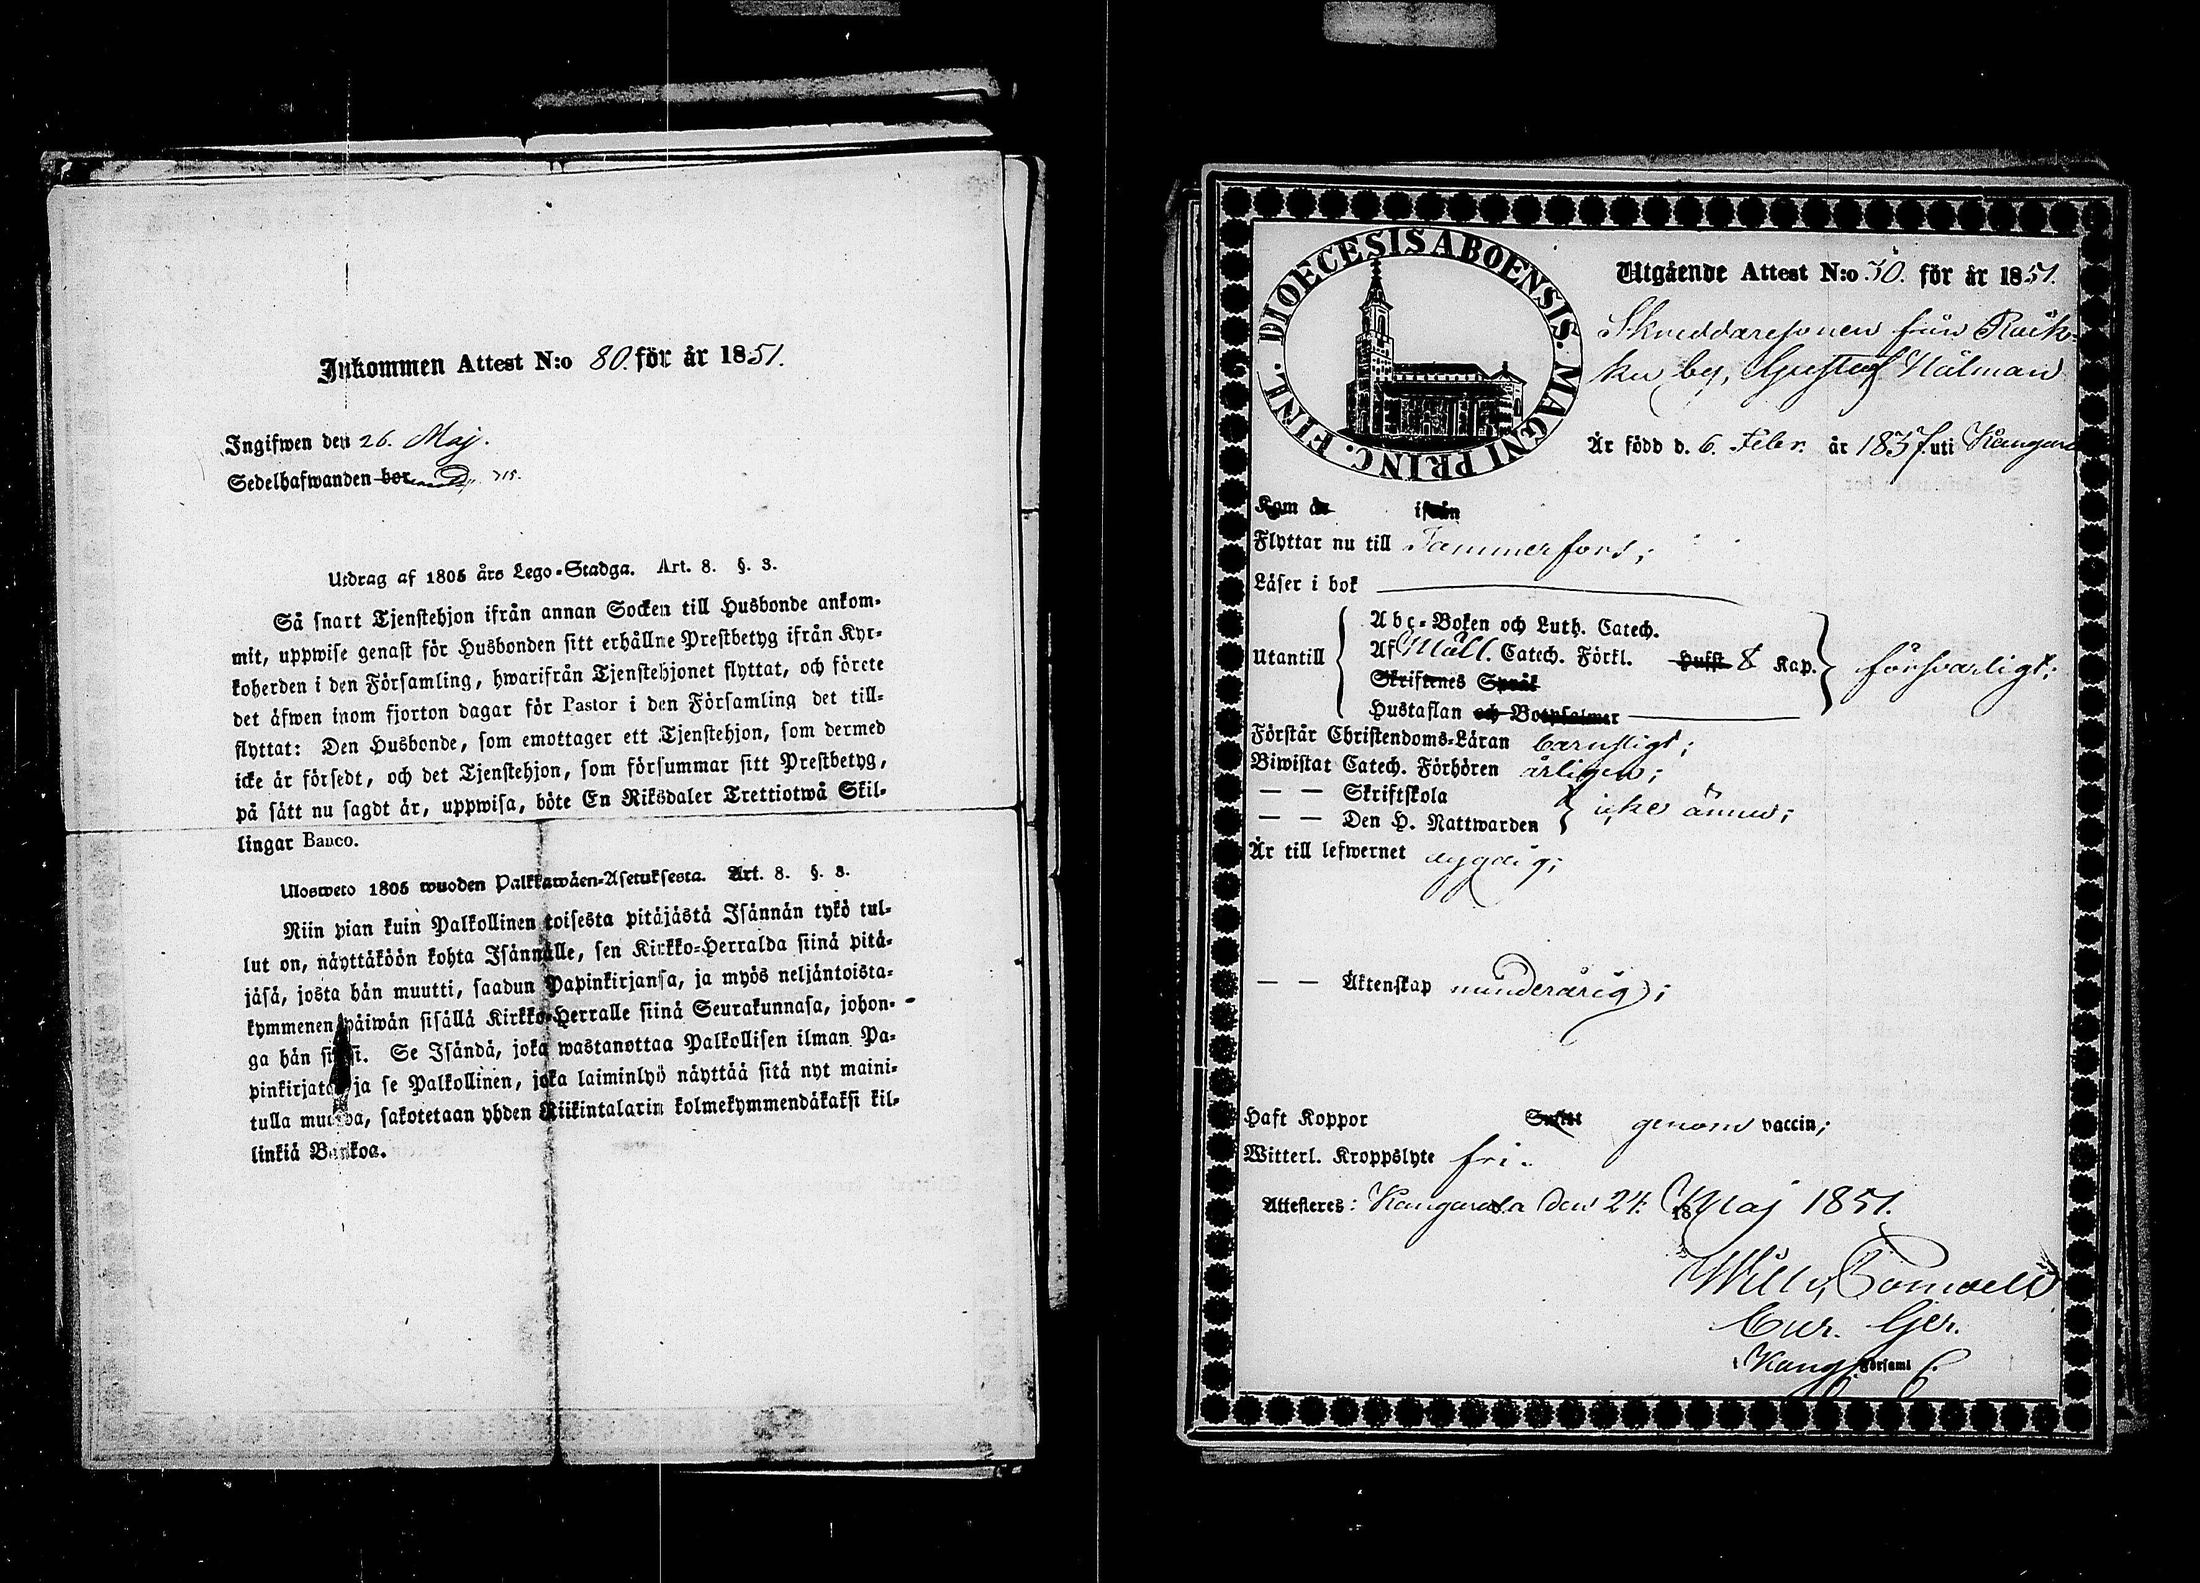 Inkommen Attest N:o 80. för år 1851.
Ingifwen den 26. Maj.
Sedelhafwanden bor 715.
Utdrag af 1805 års Lego-Stadga. Art. 8. §. 3.
Så snart Tjenstehjon ifrån annan Socken till Husbonde ankom-
mit, uppwise genast för Husbonden sitt erhållne Prestbetyg ifrån Kyr-
koherden i den Församling, hwarifrån Tjenstehjonet flyttat, och förete
det äfwen inom fjorton dagar för Pastor i den Församling det till-
flyttat: Den Husbonde, som emottager ett Tjenstehjon, som dermed
icke är försedt, och det Tjenstehjon, som försummar sitt Prestbetyg,
på sätt nu sagdt är, uppwisa, böte En Riksdaler Trettiotwå Skil-
lingar Banco.
Ulosweto 1805 wuoden Palkkawäen-Asetuksesta. Art. 8. §. 3.
Niin pian kuin Palkollinen toisesta pitäjästä Isännän tykö tul-
lut on, näyttäköön kohta Isännälle, sen Kirkko-Herralda siinä pitä-
jäsä, josta hän muutti, saadun Papinkirjansa, ja myös neljäntoista-
kymmenen päiwän sisällä Kirkko-Herralle siinä Seurakunnasa, johon-
ga hän siirsi. Se Isändä, joka wastanottaa Palkollisen ilman Pa-
pinkirjata, ja se Palkollinen, joka laiminlyö näyttää sitä nyt maini-
tulla muodoa, sakotetaan yhden Riikintalarin kolmekymmendäkaksi kil-
linkiä Bankoa.
FINL. DIOECESIS ABOENSIS. MAGNI PRINC.
Utgående Attest N:o 30. för år 1851.
Skräddaresonen från Räik-
ku by, Gustaf Nälman
Är född d. 6. Febr. år 1837. uti Kangasala
Kom år ifrån
Flyttar nu till Tammerfors;
Läser i bok
Utantill
Abc-Boken och Luth. Catech.
Af Mäll. Catech. Förkl. Hufst. 8 Kap.
Skriftenes Språk
Hustaflan och Botpsalmer
försvarligt;
Förstår Christendoms-Läran barnsligt;
Biwistat Catech. Förhören årligen;
— — Skriftskola
— — Den H. Nattwarden
icke ännu;
Är till lefwernet dygdig;
— — Äktenskap minderårig;
Haft Koppor genom vaccin;
Witterl. Kroppslyte fri.
Attesteres: Kangasala den 24. Maj 1851.
Wilh.
Cur. Ger.
i Kang Församl.